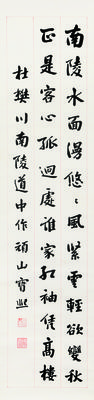 南陵水面漫悠悠風緊雲輕欲變秋
正是客心孤迥處誰家紅袖凭高樓
杜樊川南陵道中作 頑山寶熙